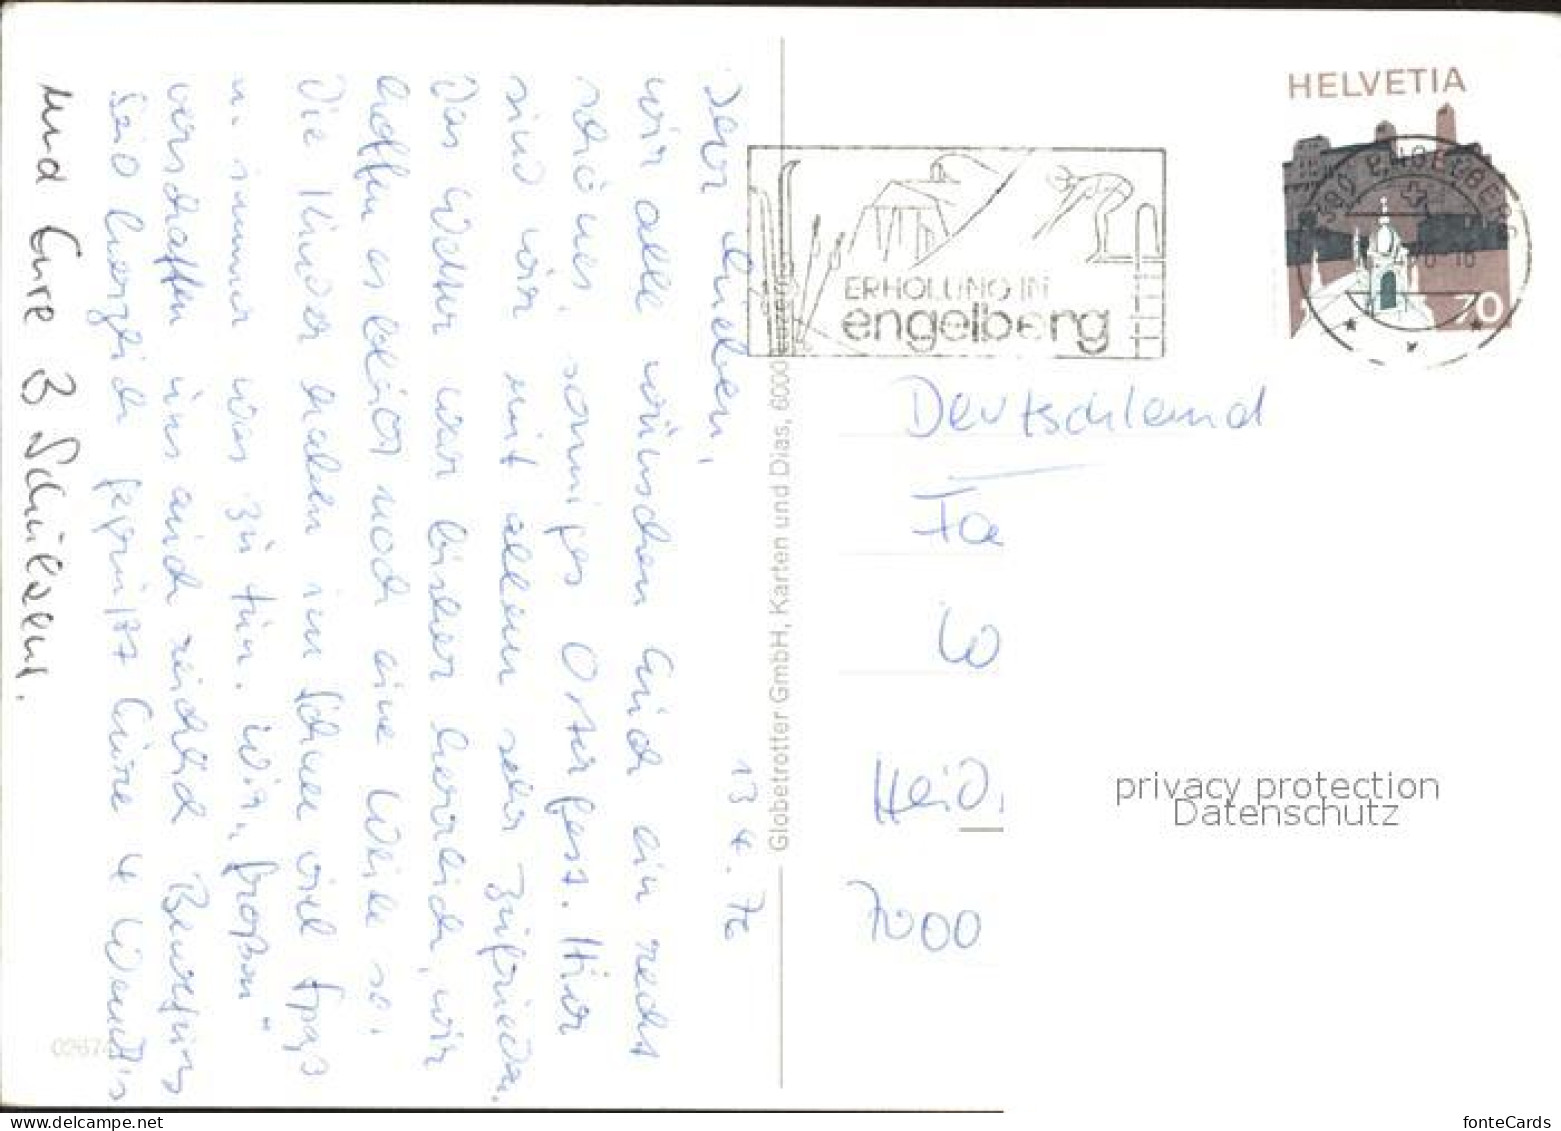 13 4. 76
wir alle wünschen Euch ein recht
schönes, sonniges Osterfest. Hier
sind wir mit allem sehr zufrieden.
Das Wetter war bisher herrlich, wir
hoffen es bleibt noch eine Weile so.
Die Kinder haben im Schnee viel Spaß
u. immer was zu tun. Wir „Großen"
verschaffen uns auch reichlich Bewegung
Seid herzlich gegrüßt Eure 4
und Eure 3
02674
Globetrotter GmbH, Karten und Dias, 6000
ERHOLUNG IN
engelberg
HELVETIA
70
6390 ENGELBERG
Deutschland
Fa
W
Heid
7000
privacy protection
Datenschutz
www.delcampe.net
fonteCards